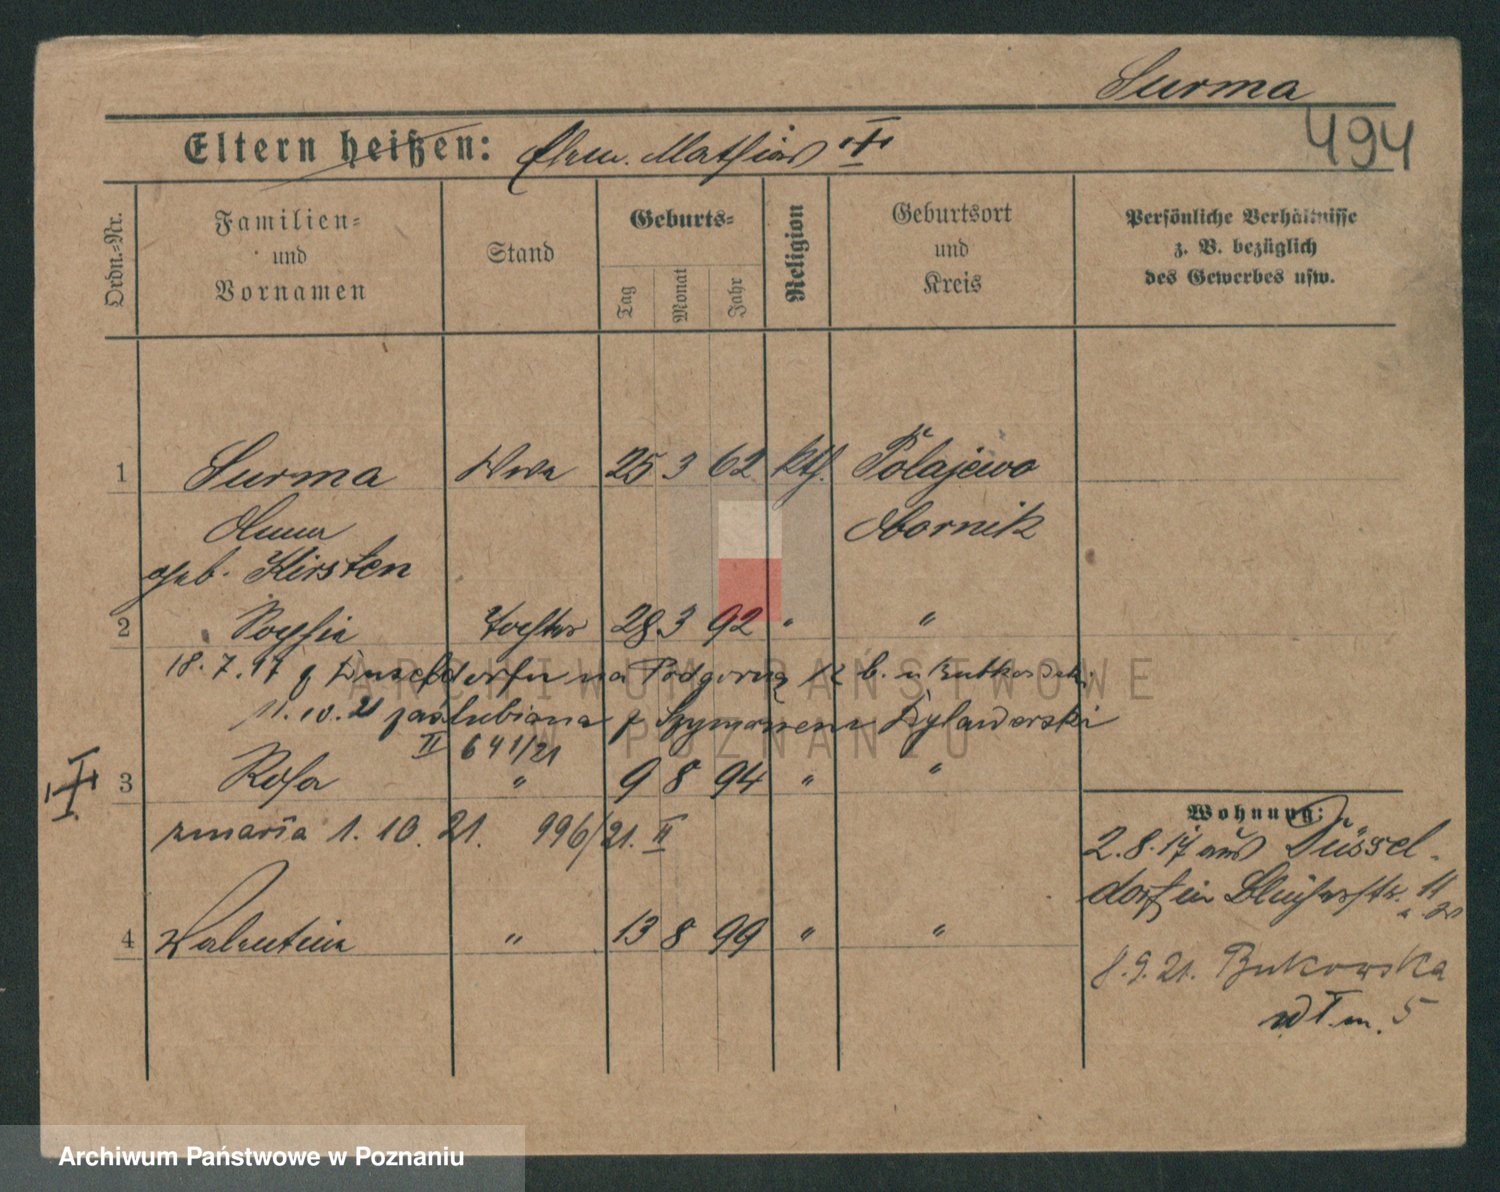 Surma
494
Eltern heißen: Ehem. Mathias
Ordn.-Nr.
Familien- und Vornamen
Stand
Geburts-
Tag Monat Jahr
Religion
Geburtsort und Kreis
Persönliche Verhältnisse z. B. bezüglich des Gewerbes usw.
1 Surma Wwe 25 3 62 kth. Polajewo
Anna Obornik
geb. Kirsten
2 Sophia Tochter 28 3 92 " "
18.7.17 z Dusseldorfu na Podgorną 12 b. u Rutkowski
11.10.21 zaślubiona z Szymonem Dylawerski
II 641/21
3 Rosa " 9 8 94 " "
zmarła 1. 10. 21. 996/21. II
4 Valentina " 13 8 99 " "
Wohnung:
2.8.17 aus Düssel-
dorf in 11
8.9.21. Bukowska
wł m. 5
ARCHIWUM PAŃSTWOWE
W POZNANIU
Archiwum Państwowe w Poznaniu